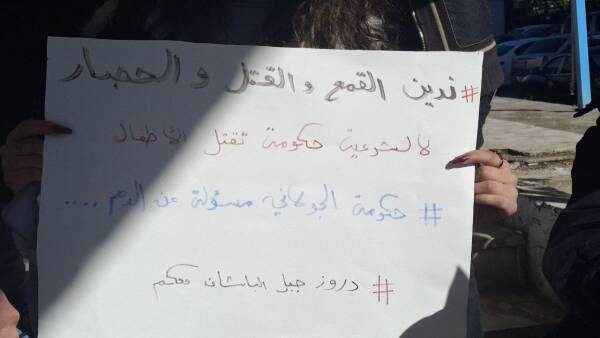 #ندين القمع والقتل والحصار
لا لشرعية حكومة تقتل الأطفال
# حكومة الجولاني مسؤولة عن الدم ....
# دروز جبل الباشان معكم